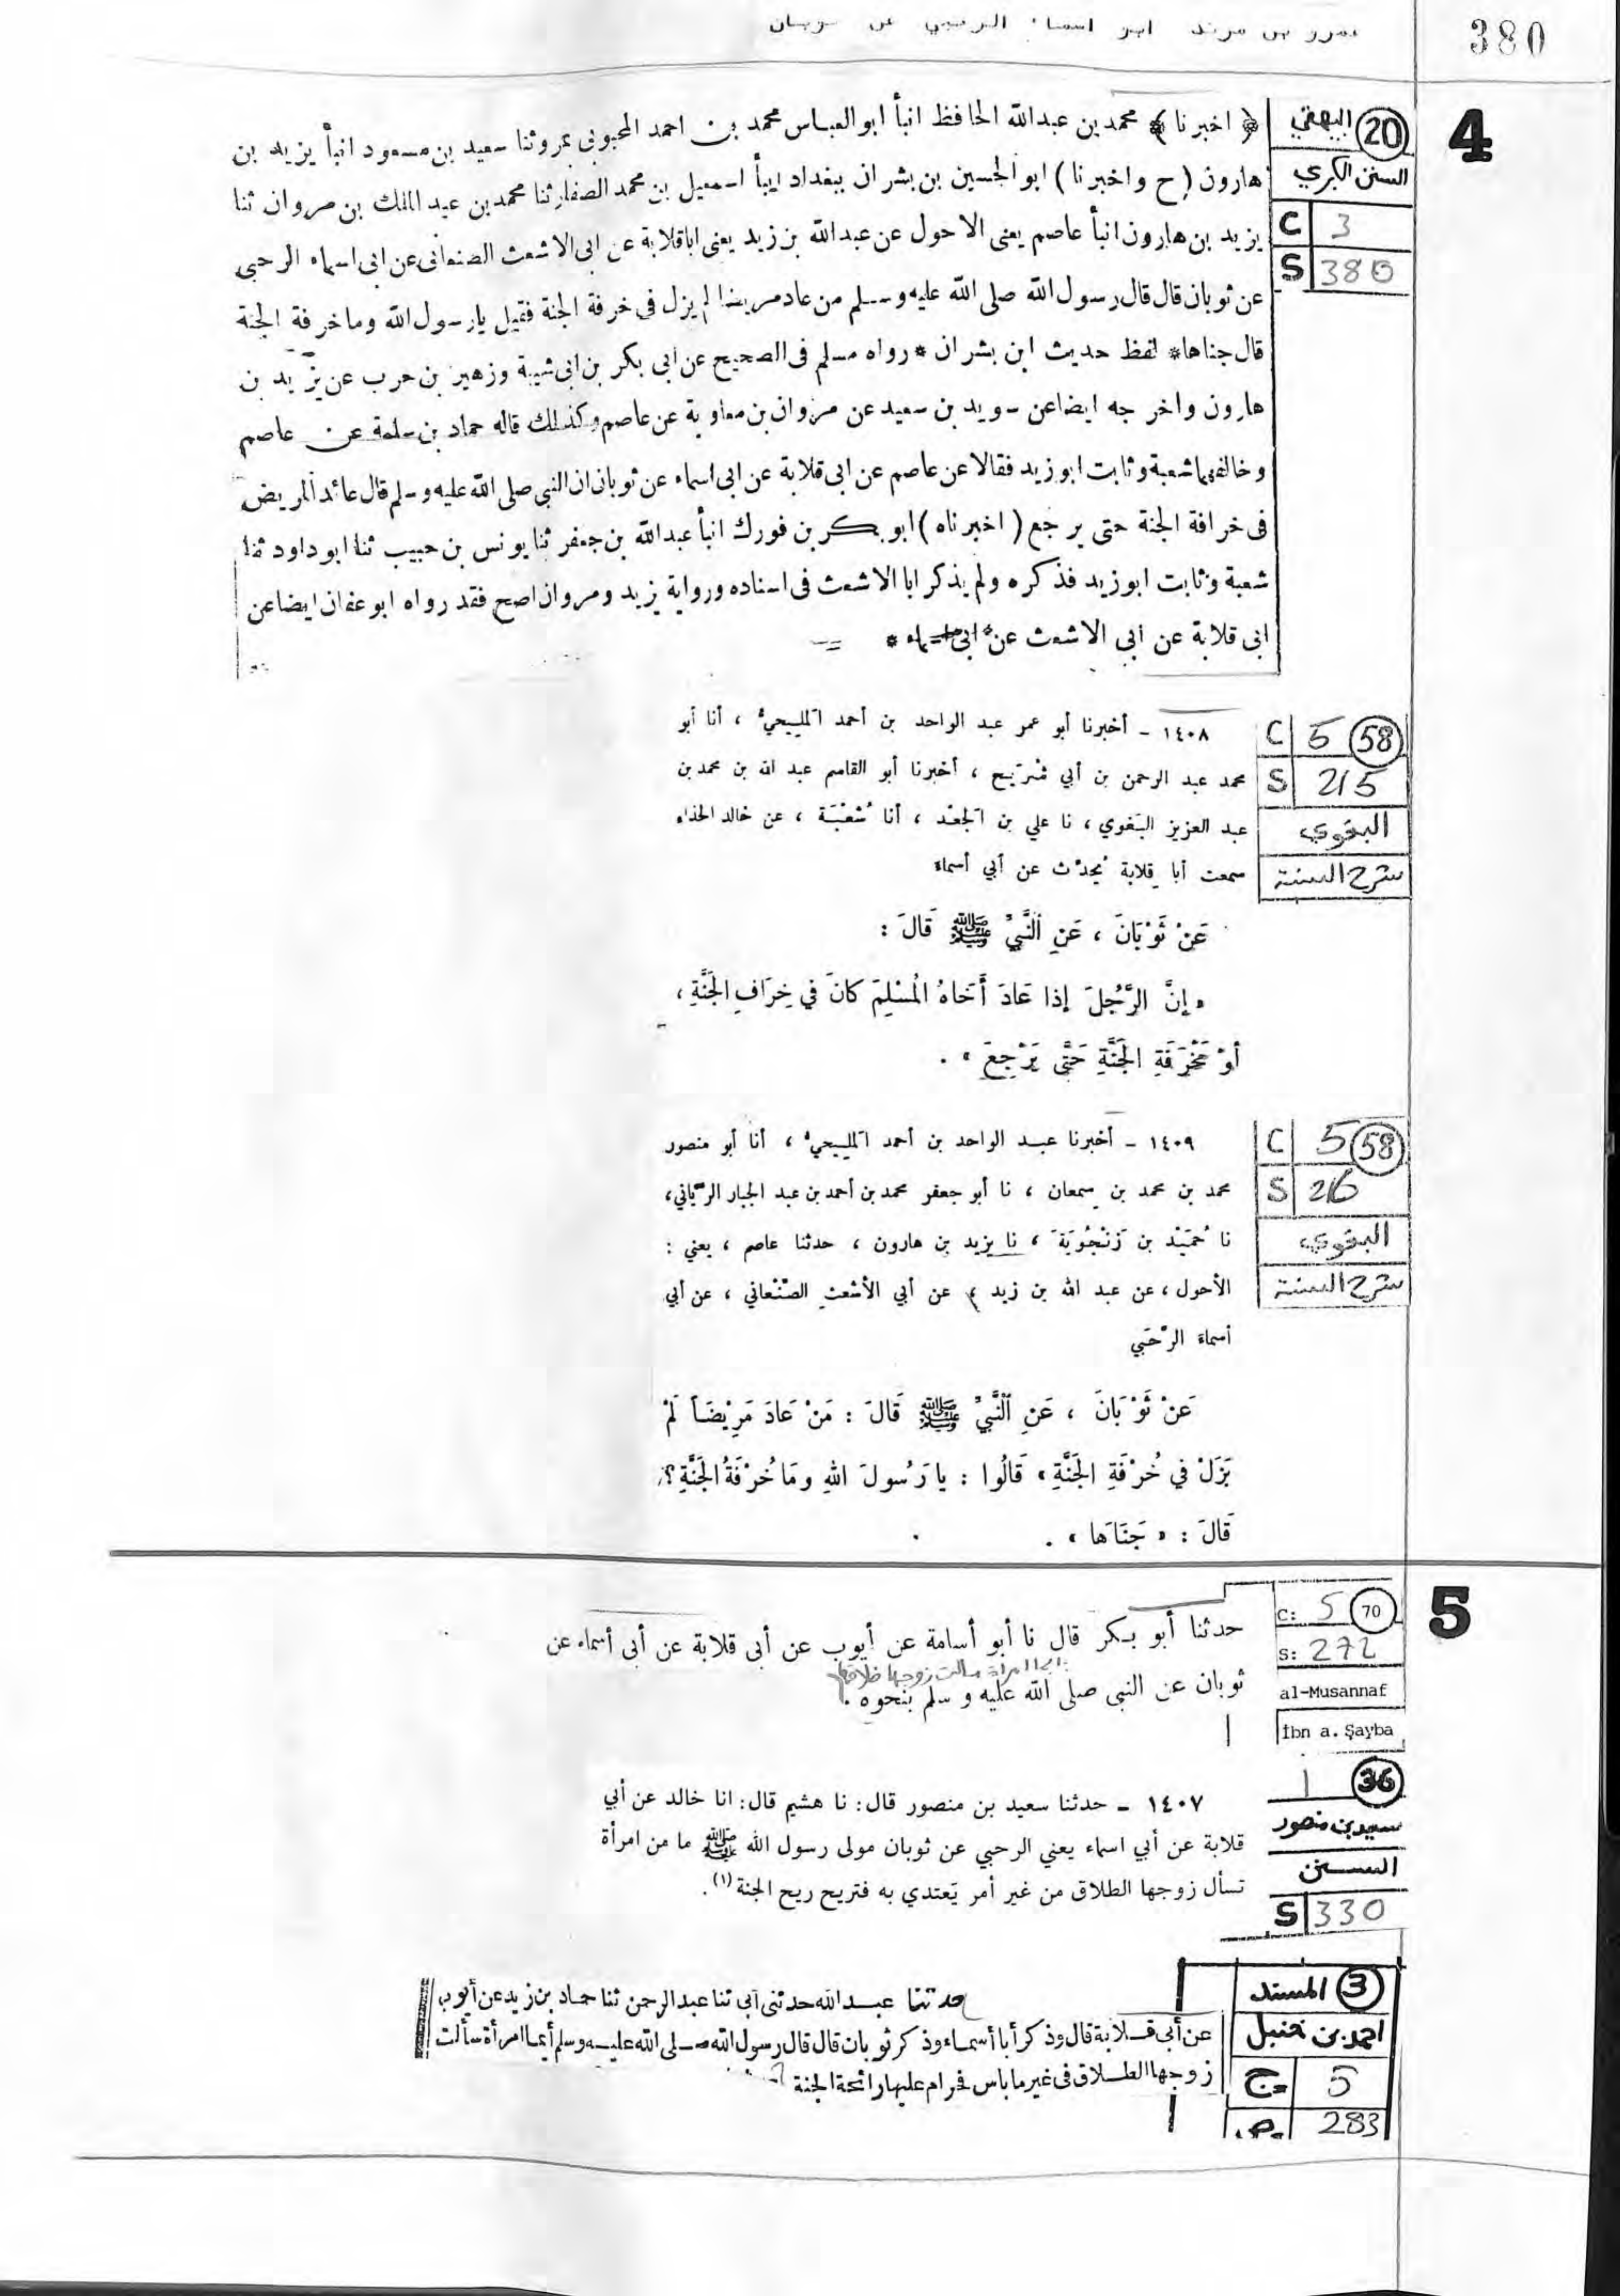 380
عمرو بن مرثد ابو اسماء الرحبي عن ثوبان
4
20 البيهقي
السنن الكبري
C 3
S 380
﴿ اخبرنا ﴾ محمد بن عبدالله الحافظ انبأ ابو العباس محمد بن احمد المحبوبى بمرو ثنا سعيد بن مسعود انبأ يزيد بن
هارون (ح واخبرنا) ابو الحسين بن بشران ببغداد ابنأ اسمعيل بن محمد الصفار ثنا محمد بن عبد الملك بن مروان ثنا
يزيد بن هارون انبأ عاصم يعنى الاحول عن عبدالله بن زيد يعنى ابا قلابة عن ابى الاشعث الصنعانى عن ابى اسماء الرحبى
عن ثوبان قال قال رسول الله صلى الله عليه وسلم من عاد مريضا لم يزل فى خرفة الجنة فقيل يا رسول الله وما خرفة الجنة
قال جناها * لفظ حديث ابن بشران * رواه مسلم فى الصحيح عن ابى بكر بن ابى شيبة وزهير بن حرب عن يزيد بن
هارون واخرجه ايضا عن سويد بن سعيد عن مروان بن معاوية عن عاصم وكذلك قاله حماد بن سلمة عن عاصم
وخالفهما شعبة وثابت ابو زيد فقالا عن عاصم عن ابى قلابة عن ابى اسماء عن ثوبان ان النبى صلى الله عليه وسلم قال عائد المريض
فى خرافة الجنة حتى يرجع (اخبرناه) ابو بكر بن فورك انبأ عبدالله بن جعفر ثنا يونس بن حبيب ثنا ابو داود ثنا
شعبة وثابت ابو زيد فذكره ولم يذكر ابا الاشعث فى اسناده ورواية يزيد ومروان اصح فقد رواه ابو عفان ايضا عن
ابى قلابة عن ابى الاشعث عن ابى اسماء *
C 5 58
S 215
البغوي
شرح السنة
١٤٠٨ - أخبرنا أبو عمر عبد الواحد بن أحمد المليحيُّ ، أنا أبو
محمد عبد الرحمن بن أبي شُرَيح ، أخبرنا أبو القاسم عبد الله بن محمد بن
عبد العزيز البَغوي ، نا علي بن الجَعْد ، أنا شُعْبَة ، عن خالد الحذاء
سمعت أبا قِلابة يُحدِّث عن أبي أسماءَ
عَنْ ثَوْبَانَ ، عَنِ النَّبِيِّ ﷺ قَالَ :
« إِنَّ الرَّجُلَ إِذا عَادَ أَخَاهُ المُسْلِمَ كَانَ في خِرَافِ الجَنَّةِ ،
أَوْ مَخْرَفَةِ الجَنَّةِ حَتَّى يَرْجِعَ » .
C 5 58
S 216
البغوي
شرح السنة
١٤٠٩ - أخبرنا عبد الواحد بن أحمد المليحيُّ ، أنا أبو منصور
محمد بن محمد بن سِمعان ، نا أبو جعفر محمد بن أحمد بن عبد الجبار الرَّيّاني ،
نا حُمَيْد بن زَنْجُوَيَةَ ، نا يزيد بن هارون ، حدثنا عاصم ، يعني :
الأحول ، عن عبد الله بن زيد ، عن أبي الأشعثِ الصَّنْعاني ، عن أبي
أسماءَ الرَّحَبي
عَنْ ثَوْبَانَ ، عَنِ النَّبِيِّ ﷺ قَالَ : مَنْ عَادَ مَرِيْضَاً لَمْ
يَزَلْ في خُرْفَةِ الجَنَّةِ ، قَالُوا : يا رَسُولَ اللهِ وَمَا خُرْفَةُ الجَنَّةِ ؟
قَالَ : « جَنَاهَا » .
5
C: 5 70
S: 272
al-Musannaf
İbn a. Şayba
حدثنا أبو بكر قال نا أبو أسامة عن أيوب عن أبى قلابة عن أبى أسماء عن
ايما امراة سالت زوجها طلاقا
ثوبان عن النبى صلى الله عليه و سلم بنحوه .
1 36
سعيد بن منصور
السنن
S 330
١٤٠٧ - حدثنا سعيد بن منصور قال: نا هشيم قال: انا خالد عن أبي
قلابة عن أبي اسماء يعني الرحبي عن ثوبان مولى رسول الله ﷺ ما من امرأة
تسأل زوجها الطلاق من غير أمر يَعتدي به فتريح ريح الجنة (١).
3 المسند
احمد بن حنبل
ج 5
ص 283
حدثنا عبد الله حدثنى أبى ثنا عبد الرحمن ثنا حماد بن زيد عن أيوب
عن أبى قلابة قال وذكر أبا أسماء وذكر ثوبان قال قال رسول الله صلى الله عليه وسلم أيما امرأة سألت
زوجها الطلاق فى غير ما باس فحرام عليها رائحة الجنة